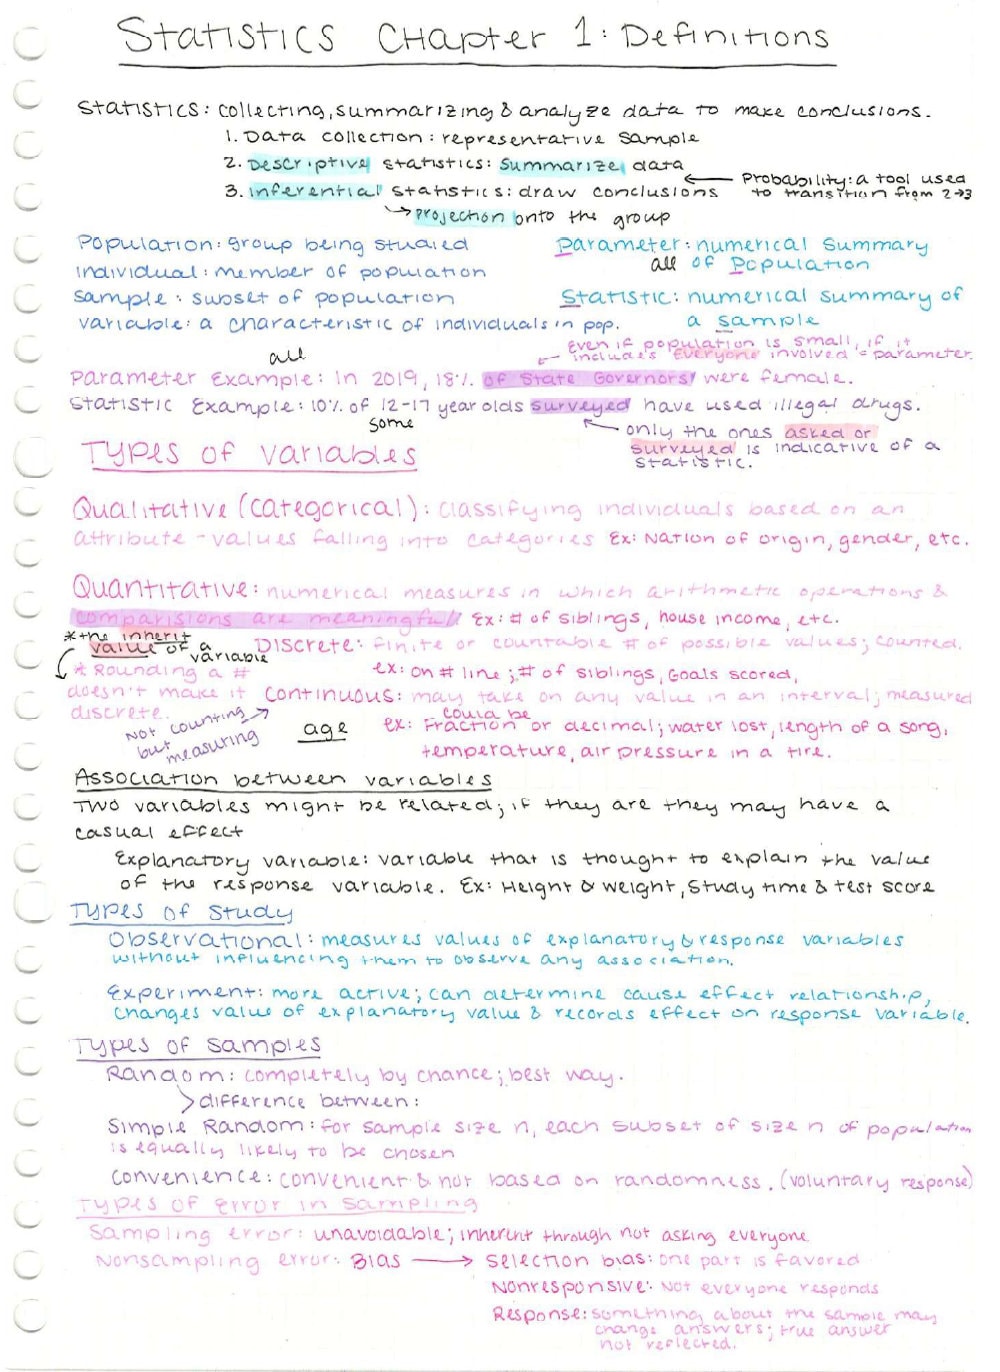 Statistics Chapter 1: Definitions
Statistics: collecting, summarizing & analyze data to make conclusions.
1. Data collection: representative sample
2. Descriptive statistics: Summarize data
3. inferential statistics: draw conclusions
Probability: a tool used
to transition from 2→3
projection onto the group
Population: group being studied
individual: member of population
sample: subset of population
variable: a characteristic of individuals in pop.
Parameter: numerical summary
all of Population
Statistic: numerical summary of
a sample
Even if population is small, if it
includes everyone involved = parameter.
all
Parameter Example: In 2019, 18% of State Governors were female.
Statistic Example: 10% of 12-17 year olds surveyed have used illegal drugs.
some
only the ones asked or
surveyed is indicative of a
statistic.
Types of variables
Qualitative (categorical): classifying individuals based on an
attribute - values falling into categories Ex: Nation of origin, gender, etc.
Quantitative: numerical measures in which arithmetic operations &
comparisions are meaningful Ex: # of siblings, house income, etc.
*the inherit
value of a
variable
Discrete: finite or countable # of possible values; counted.
ex: on # line; # of siblings, Goals scored,
* Rounding a #
doesn't make it
discrete.
continuous: may take on any value in an interval; measured
Not counting
but measuring
age
could be
ex: Fraction or decimal; water lost, length of a song,
temperature, air pressure in a tire.
Association between variables
Two variables might be related; if they are they may have a
casual effect
Explanatory variable: variable that is thought to explain the value
of the response variable. Ex: Height & weight, Study time & test score
Types of Study
Observational: measures values of explanatory & response variables
without influencing them to observe any association.
Experiment: more active; can determine cause effect relationship,
changes value of explanatory value & records effect on response variable.
Types of samples
Random: completely by chance; best way.
difference between:
Simple Random: for sample size n, each subset of size n of population
is equally likely to be chosen
Convenience: convenient & not based on randomness. (voluntary response)
Types of error in sampling
Sampling error: unavoidable; inherent through not asking everyone
Nonsampling error: Bias → selection bias: one part is favored
Nonresponsive: Not everyone responds
Response: something about the sample may
change answers; true answer
not reflected.